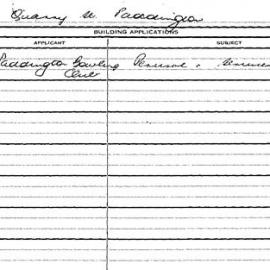 Quarry St Paddington
BUILDING APPLICATIONS
APPLICANT SUBJECT
Paddington Bowling
Club